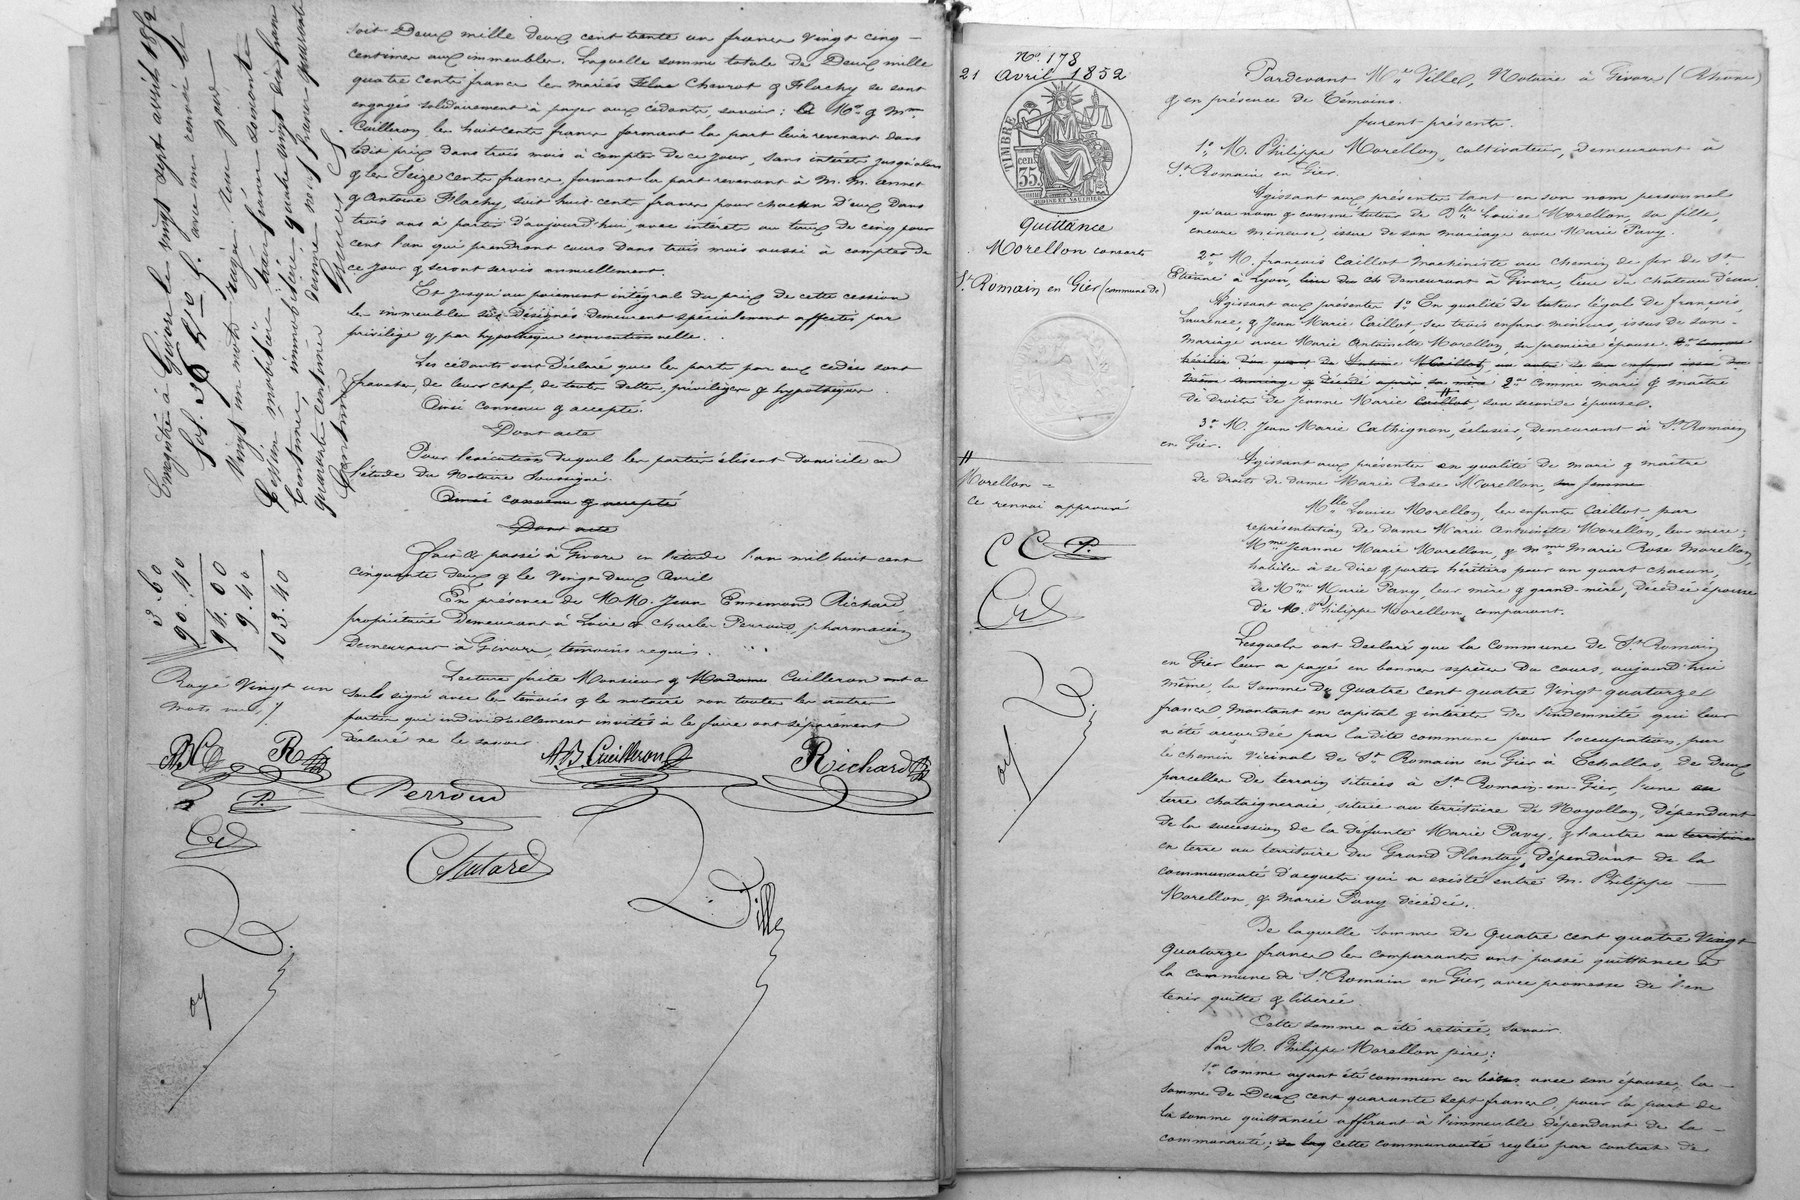 soit Deux mille deux cent trente un francs vingt cinq
centimes aux immeubles. Laquelle somme totale de Deux mille
quatre cents francs les mariés Chavrot & Flachy se sont
engagés solidairement à payer aux cédants, savoir : à Mr & Mme
Cuilleron les huit cents francs formant la part leur revenant dans
ledit prix dans trois mois à compter de ce jour, sans intérêts jusqu'alors
& les Seize cents francs formant la part revenant à M.M. annet
& Antoine Flachy, soit huit cents francs pour chacun d'eux dans
trois ans à partir d'aujourd'hui, avec intérêts au taux de cinq pour
cent l'an qui prendront cours dans trois mois aussi à compter de
ce jour & seront servis annuellement.
Et jusqu'au paiement intégral du prix de cette cession
les immeubles sus-désignés demeurent spécialement affectés par
privilège & par hypothèque conventionnelle.
Les cédants ont Déclaré que les parts par eux cédées sont
franches, de leur chef, de toutes dettes, privilèges & hypothèques.
Ainsi convenu & accepté.
Dont acte
Pour l'exécution duquel les parties élisent domicile en
l'étude du Notaire Soussigné.
Ainsi convenu & accepté
Dont acte
Fait & passé à Givors en l'étude l'an mil huit cent
cinquante deux & le vingt deux avril
En présence de M.M. Jean Ennemond Richard,
propriétaire demeurant à Loire & Charles Perroud, pharmacien
demeurant à Givors, témoins requis.
Lecture faite Monsieur & Madame Cuilleron ont
seuls signé avec les témoins & le notaire non toutes les autres
parties qui individuellement invitées à le faire ont séparément
déclaré ne le savoir
Enregistré à Givors le vingt sept avril 1852
vingt un mots rayés nuls pour
Cession mobilière trois francs soixante
Centimes, immobilière quatre vingt dix francs
quarante centimes, decime neuf francs quarante
Centimes
3.60
90.40
94.00
9.40
103.40
Rayé vingt un
mots nuls
R
A B Cueilleron
Richard
P.
Perroud
Chutard
Ville
No. 178
21 Avril 1852
TIMBRE
35 cen
Quittance
Morellon consorts
St Romain en Gier (commune de)
#
Morellon =
ce renvoi approuvé
C C P.
Pardevant Me Ville, Notaire à Givors (Rhône)
& en présence de Témoins.
furent présents.
1o M. Philippe Morellon, cultivateur, demeurant à
St Romain en Gier.
Agissant aux présentes tant en son nom personnel
qu'au nom & comme tuteur de Dlle Louise Morellon, sa fille,
encore mineure, issue de son mariage avec Marie Pavy.
2o M. françois Caillot machiniste au chemin de fer de St
Etienne à Lyon, demeurant à Givors, lieu du château d'eau,
Agissant aux présentes 1o En qualité de tuteur légale de françois,
Laurence, & Jean Marie Caillot ses trois enfants mineurs, issus de son
mariage avec Marie Antoinette Morellon, sa première épouse.
2o comme mari & maître
de droits de Jeanne Marie Caillot #, son seconde épouse.
3o M. Jean Marie Cathignon, éclusier, demeurant à St Romain
en Gier.
Agissant aux présentes en qualité de mari & maître
de droits de dame Marie Rose Morellon, sa femme
Mlle Louise Morellon, les enfants Caillot, par
représentation de Dame Marie Antoinette Morellon, leur mère;
Mme Jeanne Marie Morellon, & Mme Marie Rose Morellon,
habiles à se dire & porter héritiers pour un quart chacun,
de Mme Marie Pavy, leur mère & grand-mère, décédée épouse
de M. Philippe Morellon, comparant.
Lesquels ont déclaré que la commune de St Romain
en Gier leur a payé en bonnes espèces du cours, aujourd'hui
même, la somme de Quatre cent quatre vingt quatorze
francs montant en capital & intérêts de l'indemnité qui leur
a été accordée par ladite commune pour l'occupation, par
le chemin vicinal de St Romain en Gier à Echallas, de deux
parcelles de terrain situées à St Romain-en-Gier, l'une en
terre chataigneraie, située au territoire de Noyollon, dépendant
de la succession de la défunte Marie Pavy, & l'autre au territoire
en terre au territoire du Grand Plantay, dépendant de la
communauté d'acquets qui a existé entre M. Philippe
Morellon, & Marie Pavy décédée.
De laquelle somme de Quatre cent quatre vingt
Quatorze francs les comparants ont passé quittance à
la commune de St Romain en Gier, avec promesse de l'en
tenir quitte & libérée.
Cette somme a été retirée, savoir.
Par M. Philippe Morellon père;
1o comme ayant été commun en biens avec son épouse, la
somme de Deux cent quarante sept francs, pour la part de
la somme quittancée afférant à l'immeuble dépendant de la
communauté; cette communauté réglée par contrat de